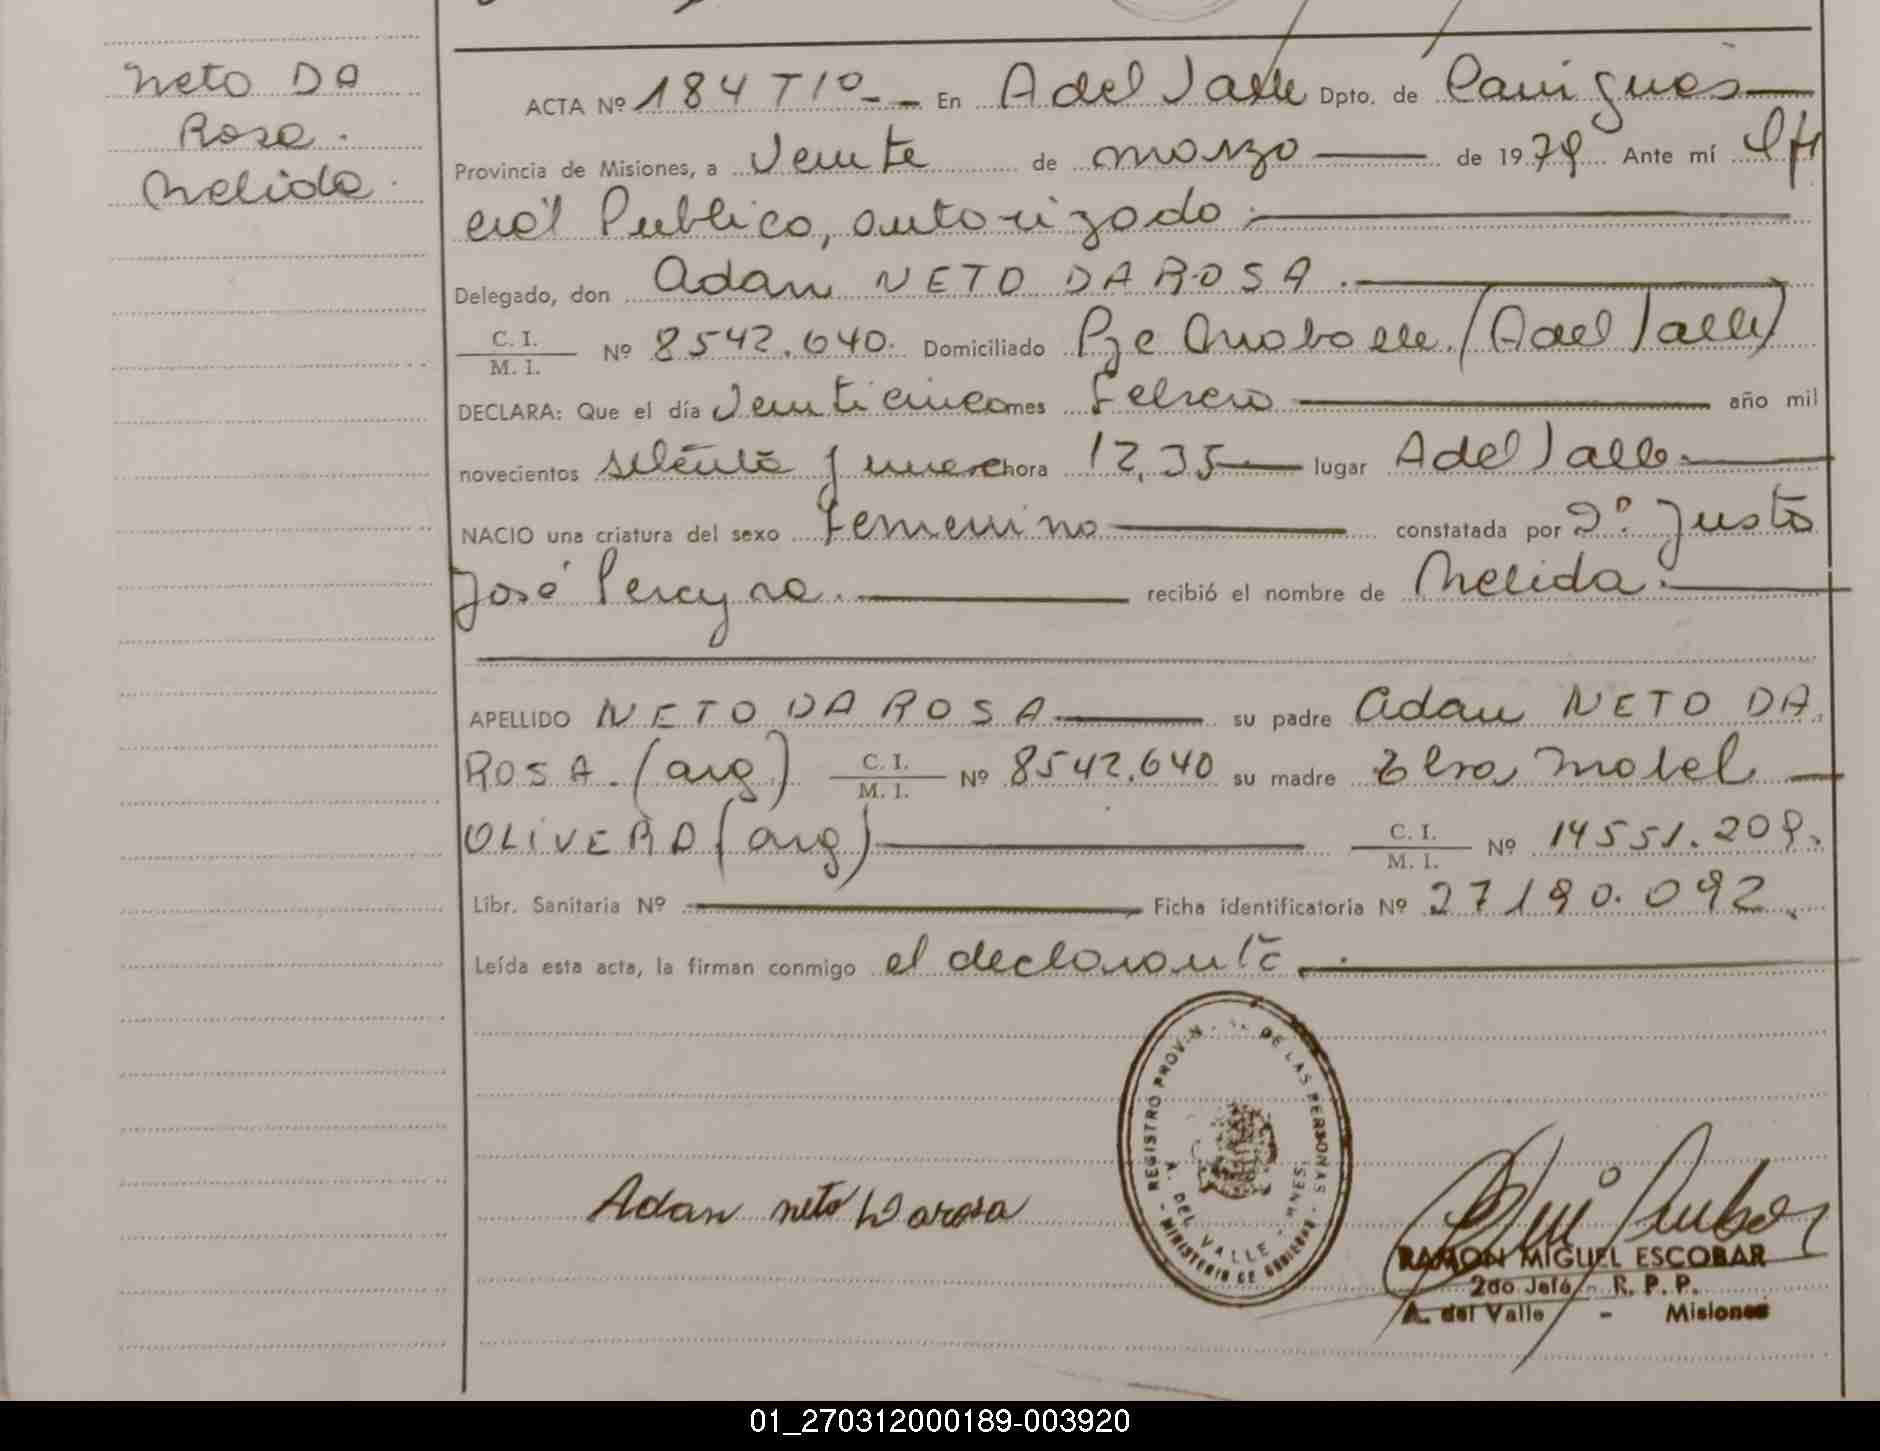 Neto DA
Rosa.
Nelida.
ACTA Nº 184 T1º-- En A del Valle Dpto. de Cainguas
Provincia de Misiones, a veinte de marzo de 1979 Ante mí Ofi
cial Publico, autorizado.
Delegado, don Adan NETO DA ROSA.
C. I.
M. I. Nº 8542.640. Domiciliado Pje (A del Valle)
DECLARA: Que el día veinticinco mes Febrero año mil
novecientos setenta y nueve hora 12,35 lugar A del Valle
NACIO una criatura del sexo Femenino constatada por Dº. Justo
José Pereyra. recibió el nombre de Nelida.
APELLIDO NETO DA ROSA su padre Adan NETO DA
ROSA. (arg) C. I.
M. I. Nº 8542.640 su madre Elsa Mabel
OLIVERA (arg) C. I.
M. I. Nº 14551.209.
Libr. Sanitaria Nº Ficha identificatoria Nº 27190.092.
Leída esta acta, la firman conmigo el declarante.
REGISTRO PROVIN DE LAS PERSONAS
A. DEL VALLE - MNES.
MINISTERIO DE GOBIERNO
Adan neto Darosa
RAMON MIGUEL ESCOBAR
2do Jefe R. P. P.
A. del Valle - Misiones
01_270312000189-003920